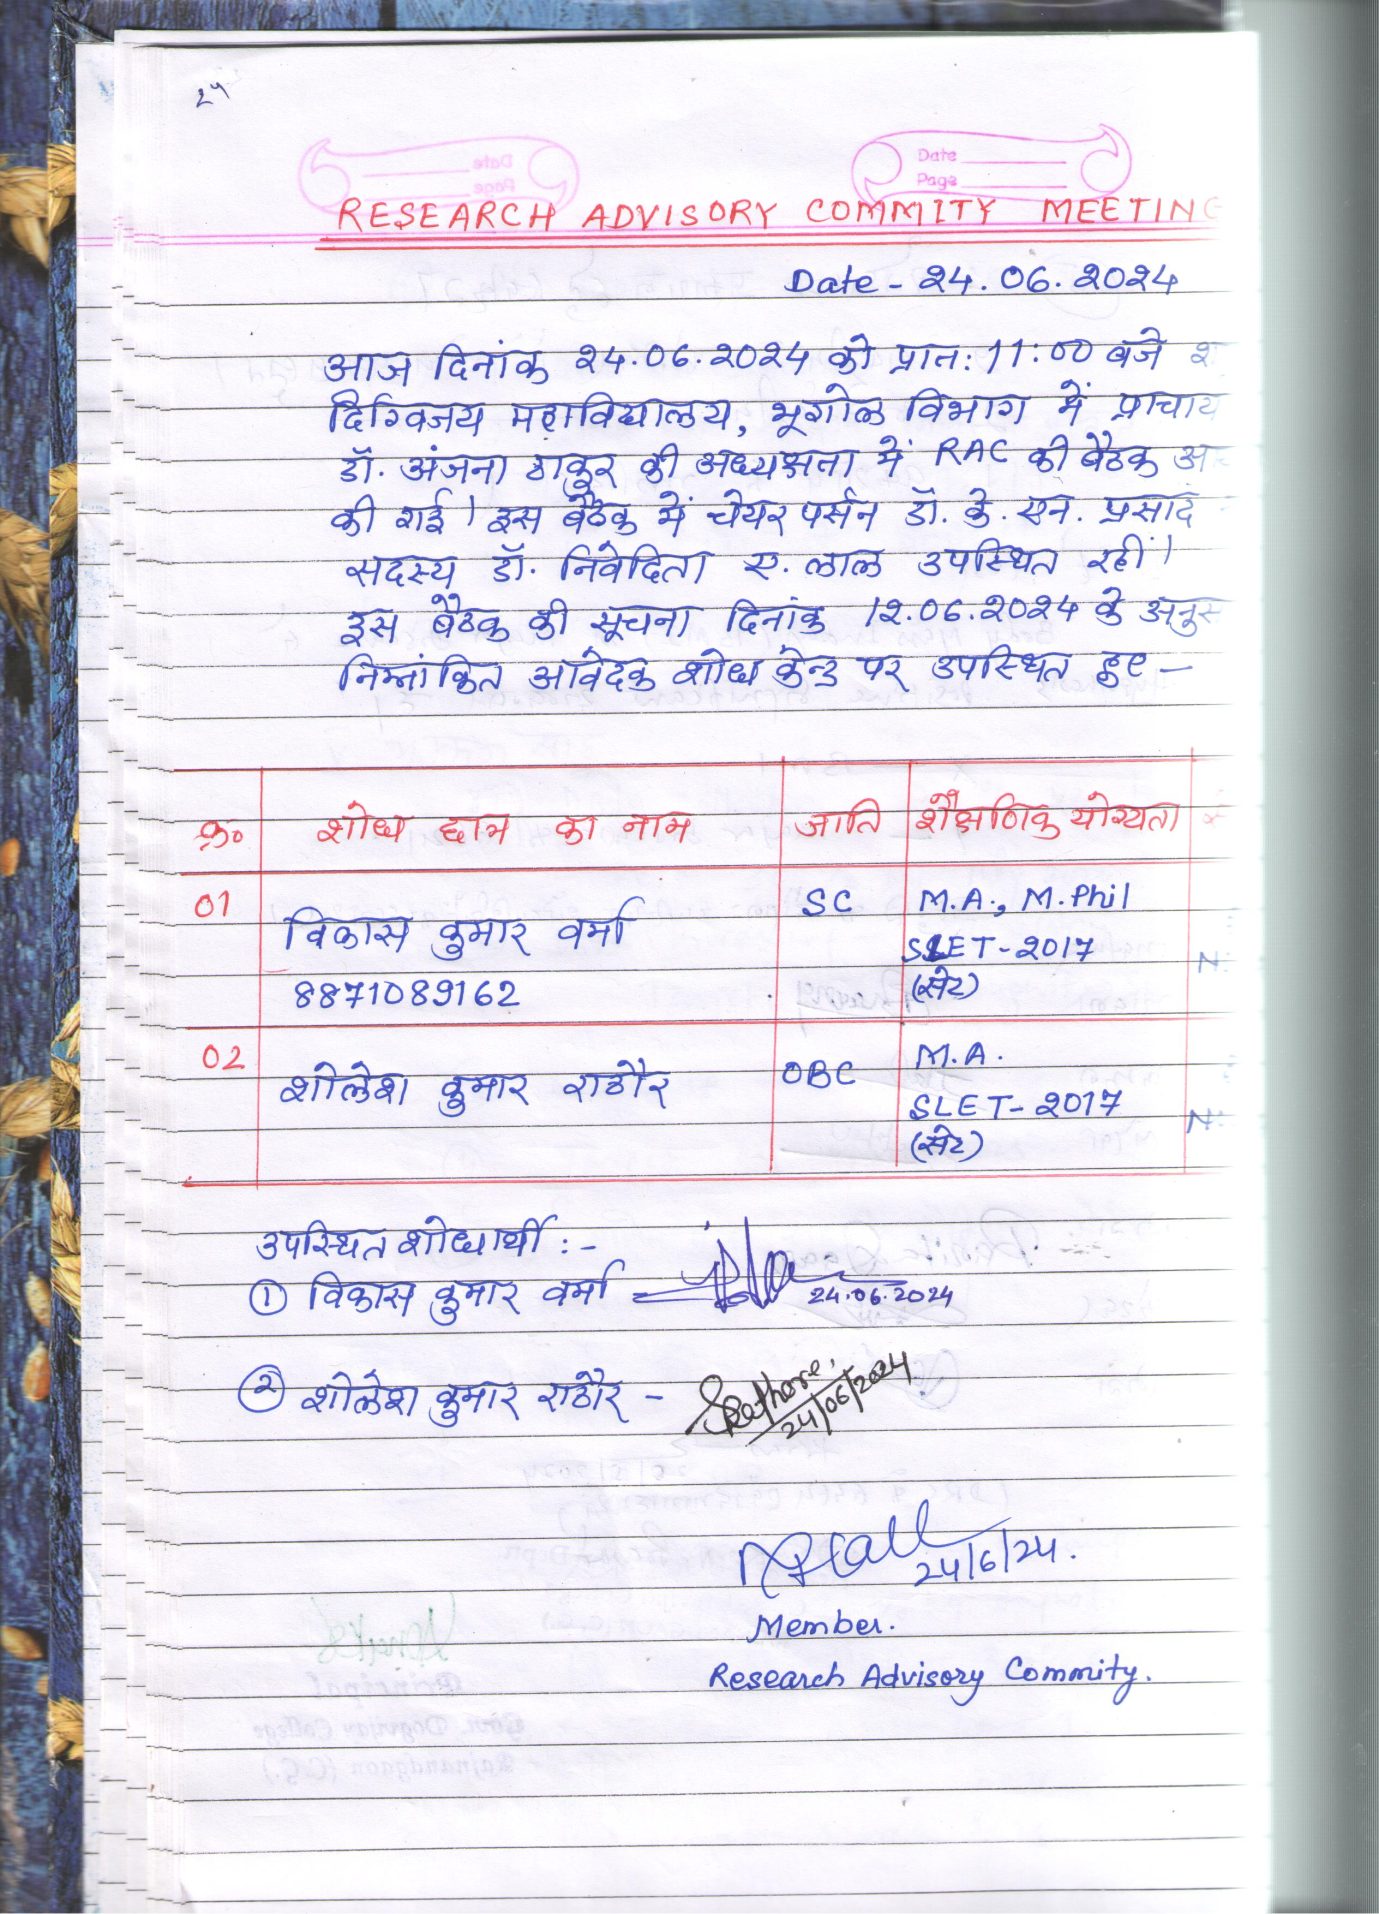 24
Date
Page
RESEARCH ADVISORY COMMITY MEETING
Date - 24.06.2024
आज दिनांक 24.06.2024 को प्रात: 11:00 बजे
दिग्विजय महाविद्यालय, भूगोल विभाग में प्राचार्य
डॉ. अंजना ठाकुर की अध्यक्षता में RAC की बैठक
की गई। इस बैठक में चेयर पर्सन डॉ. के. एन. प्रसाद
सदस्य डॉ. निवेदिता ए. लाल उपस्थित रहीं।
इस बैठक की सूचना दिनांक 12.06.2024 के अनुस
निम्नांकित आवेदक शोध केन्द्र पर उपस्थित हुए –
क्र० शोध छात्र का नाम जाति शैक्षणिक योग्यता
01 विकास कुमार वर्मा SC M.A., M.Phil
SLET-2017
8871089162 (सेट)
02 शैलेश कुमार राठौर OBC M.A.
SLET-2017
(सेट)
उपस्थित शोधार्थी :-
① विकास कुमार वर्मा
24.06.2024
② शैलेश कुमार राठौर - SRathore
24/06/2024
24/6/24.
Member.
Research Advisory Commity.